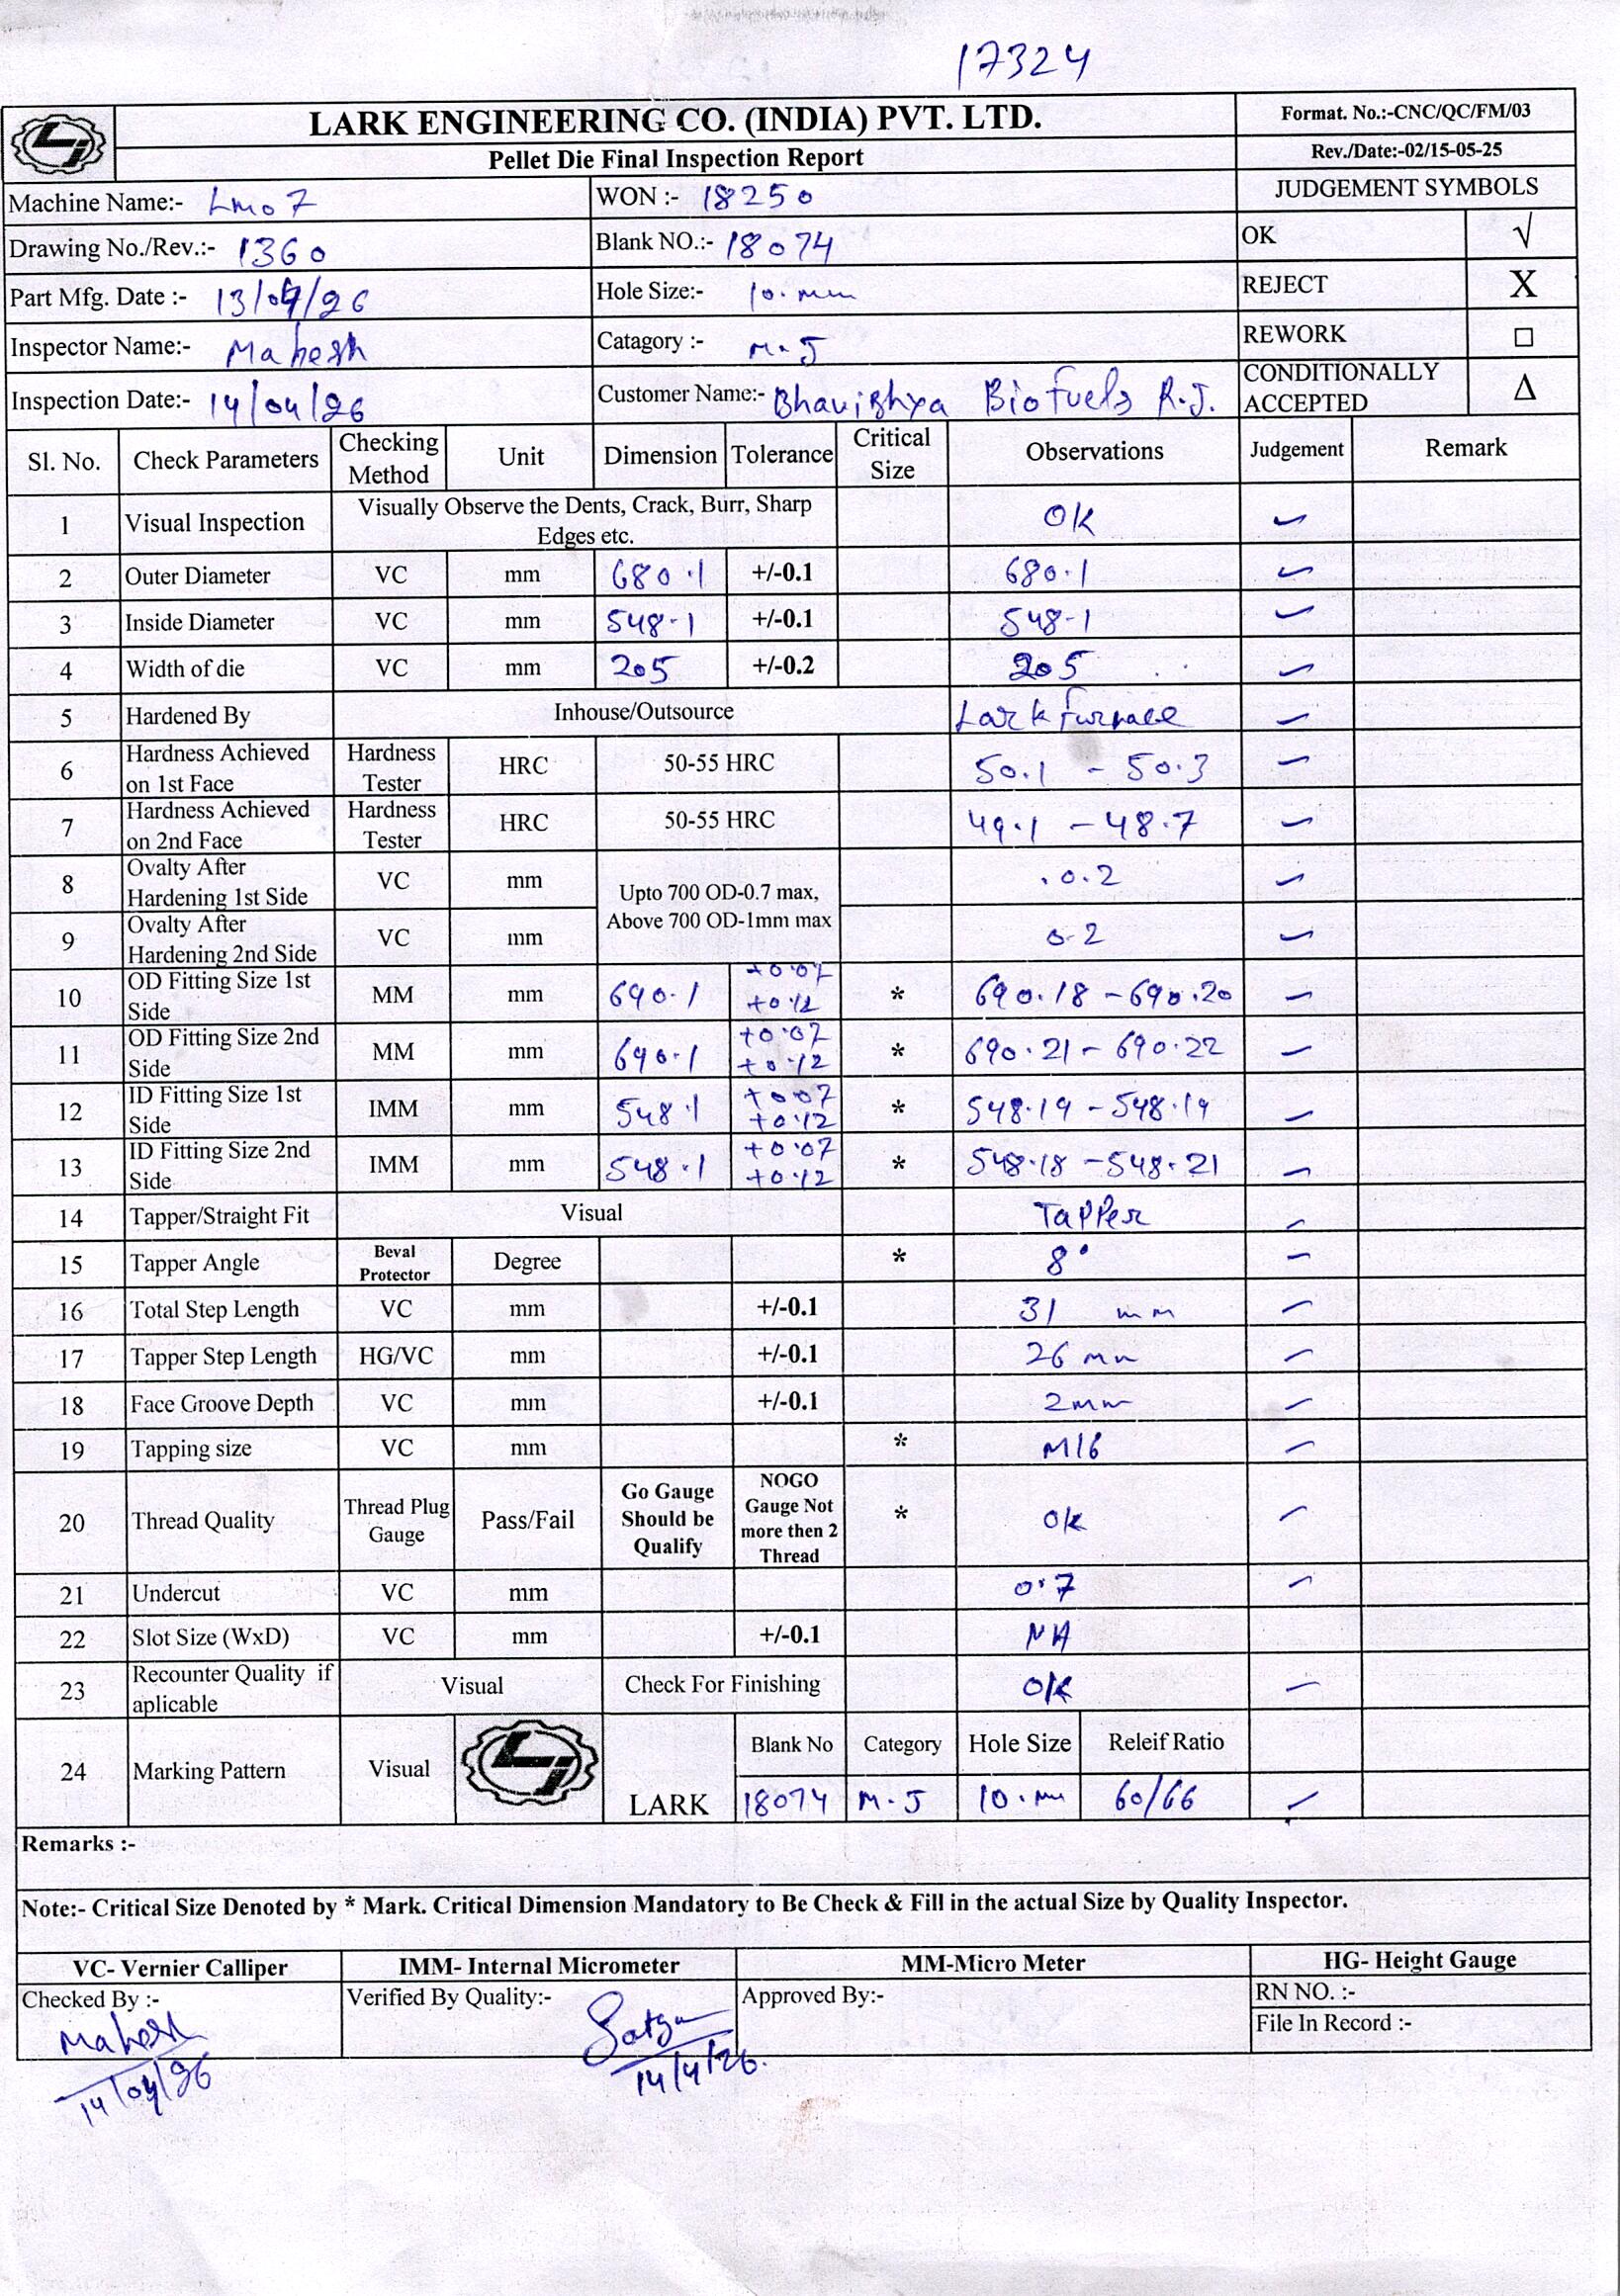 17324
LARK ENGINEERING CO. (INDIA) PVT. LTD.
Format. No.:-CNC/QC/FM/03
Pellet Die Final Inspection Report
Rev./Date:-02/15-05-25
Machine Name:- Lm07 WON :- 18250 JUDGEMENT SYMBOLS
Drawing No./Rev.:- 1360 Blank NO.:- 18074 OK √
Part Mfg. Date :- 13/04/26 Hole Size:- 10.mm REJECT X
Inspector Name:- Mahesh Catagory :- M.J REWORK □
Inspection Date:- 14/04/26 Customer Name:- Bhavishya Biofuels R.J. CONDITIONALLY ACCEPTED Δ
Sl. No. Check Parameters Checking Method Unit Dimension Tolerance Critical Size Observations Judgement Remark
1 Visual Inspection Visually Observe the Dents, Crack, Burr, Sharp Edges etc. OK ✓
2 Outer Diameter VC mm 680.1 +/-0.1 680.1 ✓
3 Inside Diameter VC mm 548.1 +/-0.1 548.1 ✓
4 Width of die VC mm 205 +/-0.2 205 ✓
5 Hardened By Inhouse/Outsource Lark furnace ✓
6 Hardness Achieved on 1st Face Hardness Tester HRC 50-55 HRC 50.1 - 50.3 ✓
7 Hardness Achieved on 2nd Face Hardness Tester HRC 50-55 HRC 49.1 - 48.7 ✓
8 Ovalty After Hardening 1st Side VC mm Upto 700 OD-0.7 max, Above 700 OD-1mm max .0.2 ✓
9 Ovalty After Hardening 2nd Side VC mm 0.2 ✓
10 OD Fitting Size 1st Side MM mm 690.1 +0.07 +0.12 * 690.18 - 690.20 ✓
11 OD Fitting Size 2nd Side MM mm 690.1 +0.07 +0.12 * 690.21 - 690.22 ✓
12 ID Fitting Size 1st Side IMM mm 548.1 +0.07 +0.12 * 548.19 - 548.19 ✓
13 ID Fitting Size 2nd Side IMM mm 548.1 +0.07 +0.12 * 548.18 - 548.21 ✓
14 Tapper/Straight Fit Visual Tapper ✓
15 Tapper Angle Beval Protector Degree * 8° ✓
16 Total Step Length VC mm +/-0.1 31 mm ✓
17 Tapper Step Length HG/VC mm +/-0.1 26 mm ✓
18 Face Groove Depth VC mm +/-0.1 2mm ✓
19 Tapping size VC mm * M16 ✓
20 Thread Quality Thread Plug Gauge Pass/Fail Go Gauge Should be Qualify NOGO Gauge Not more then 2 Thread * Ok ✓
21 Undercut VC mm 0.7 ✓
22 Slot Size (WxD) VC mm +/-0.1 NA
23 Recounter Quality if aplicable Visual Check For Finishing OK ✓
24 Marking Pattern Visual LARK Blank No Category Hole Size Releif Ratio
18074 M.J 10.mm 60/66 ✓
Remarks :-
Note:- Critical Size Denoted by * Mark. Critical Dimension Mandatory to Be Check & Fill in the actual Size by Quality Inspector.
VC- Vernier Calliper IMM- Internal Micrometer MM-Micro Meter HG- Height Gauge
Checked By :- Verified By Quality:- Approved By:- RN NO. :-
File In Record :-
Mahesh
14/04/26
14/4/26.